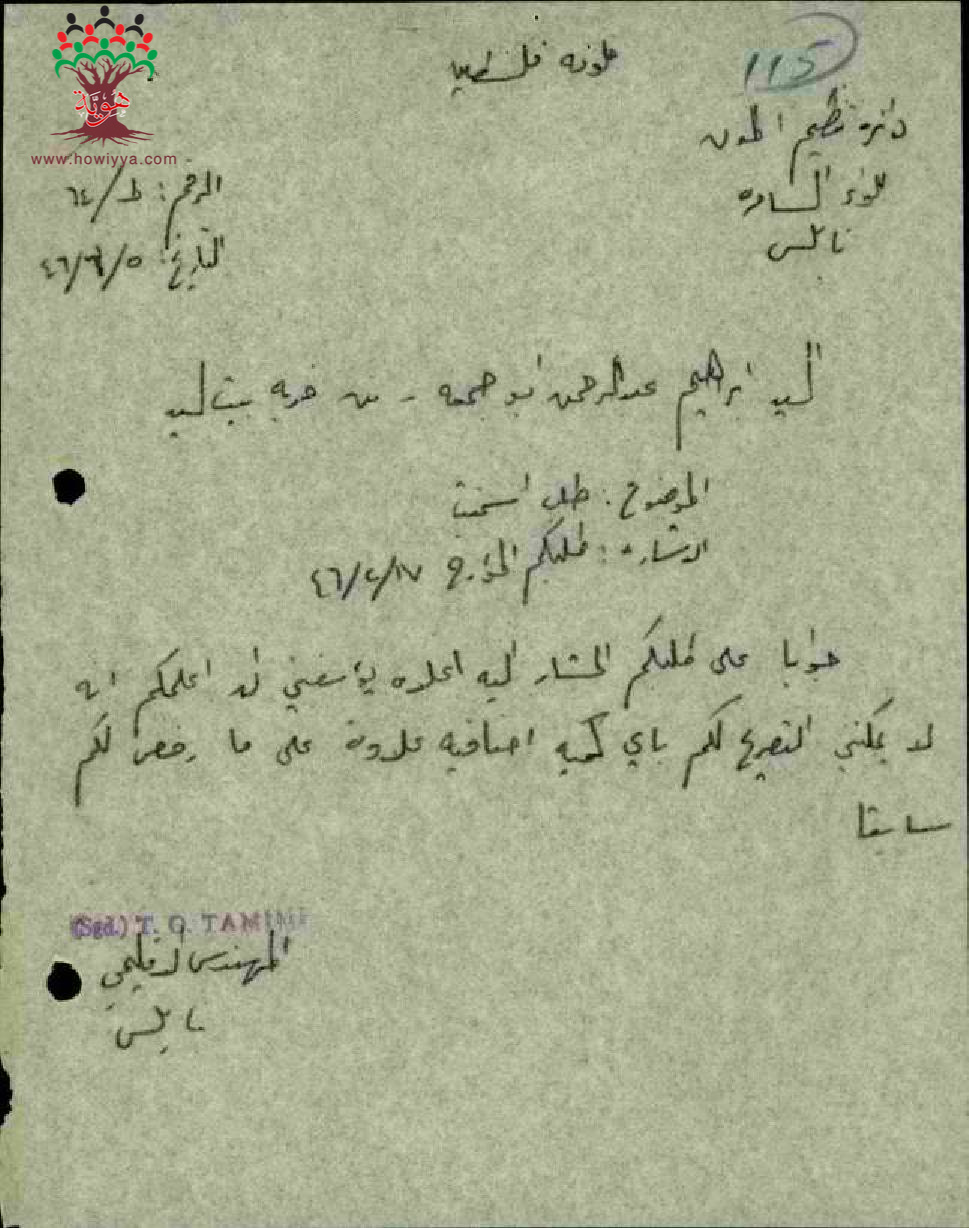 115
حكومة فلسطين
دائرة تنظيم المدن
لواء السامره
نابلس
الرقم: ط/٦٤
التاريخ: ٤٦/٦/٥
السيد ابراهيم عبدالرحمن ابو جمعه - من خربه بيت ليد
الموضوع: طلب اسمنت
الاشاره: طلبكم المؤرخ ٤٦/٤/١٧
جوابا على طلبكم المشار اليه اعلاه يؤسفني ان اعلمكم انه
لا يمكنني التصريح لكم باي كميه اضافيه علاوة على ما رخص لكم
سابقا
(Sgd.) T. O. TAMIMI
المهندس الاقليمي
نابلس
هوية
www.howiyya.com